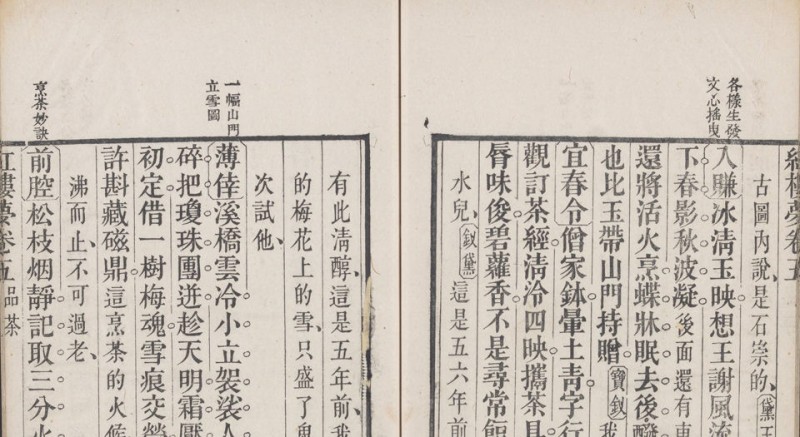 紅樓夢卷五
各樣生發
文心搖曳
古圖內說、是石崇的、黛玉
入賺冰清玉映想王謝風流
下春影秋波凝後面還有東
還將活火烹蝶牀眠去後醪
也比玉帶山門持贈寶釵我
宜春令僧家鉢暈土青字行
觀訂茶經清泠四映攜茶具
唇味俊碧蘿香不是尋常
水兒、釵黛這是五六年前
一幅山門
立雪圖
有此清醇、這是五年前、我
的梅花上的雪、只盛了
次試他、
薄倖溪橋雲冷小立袈裟人
碎把瓊珠團迸趁天明霜壓
初定借一樹梅魂雪痕交
許斟藏磁鼎這烹茶的火候
沸而止、不可過老、
烹茶妙訣
前腔松枝烟靜記取三分火
紅樓夢卷五 品茶